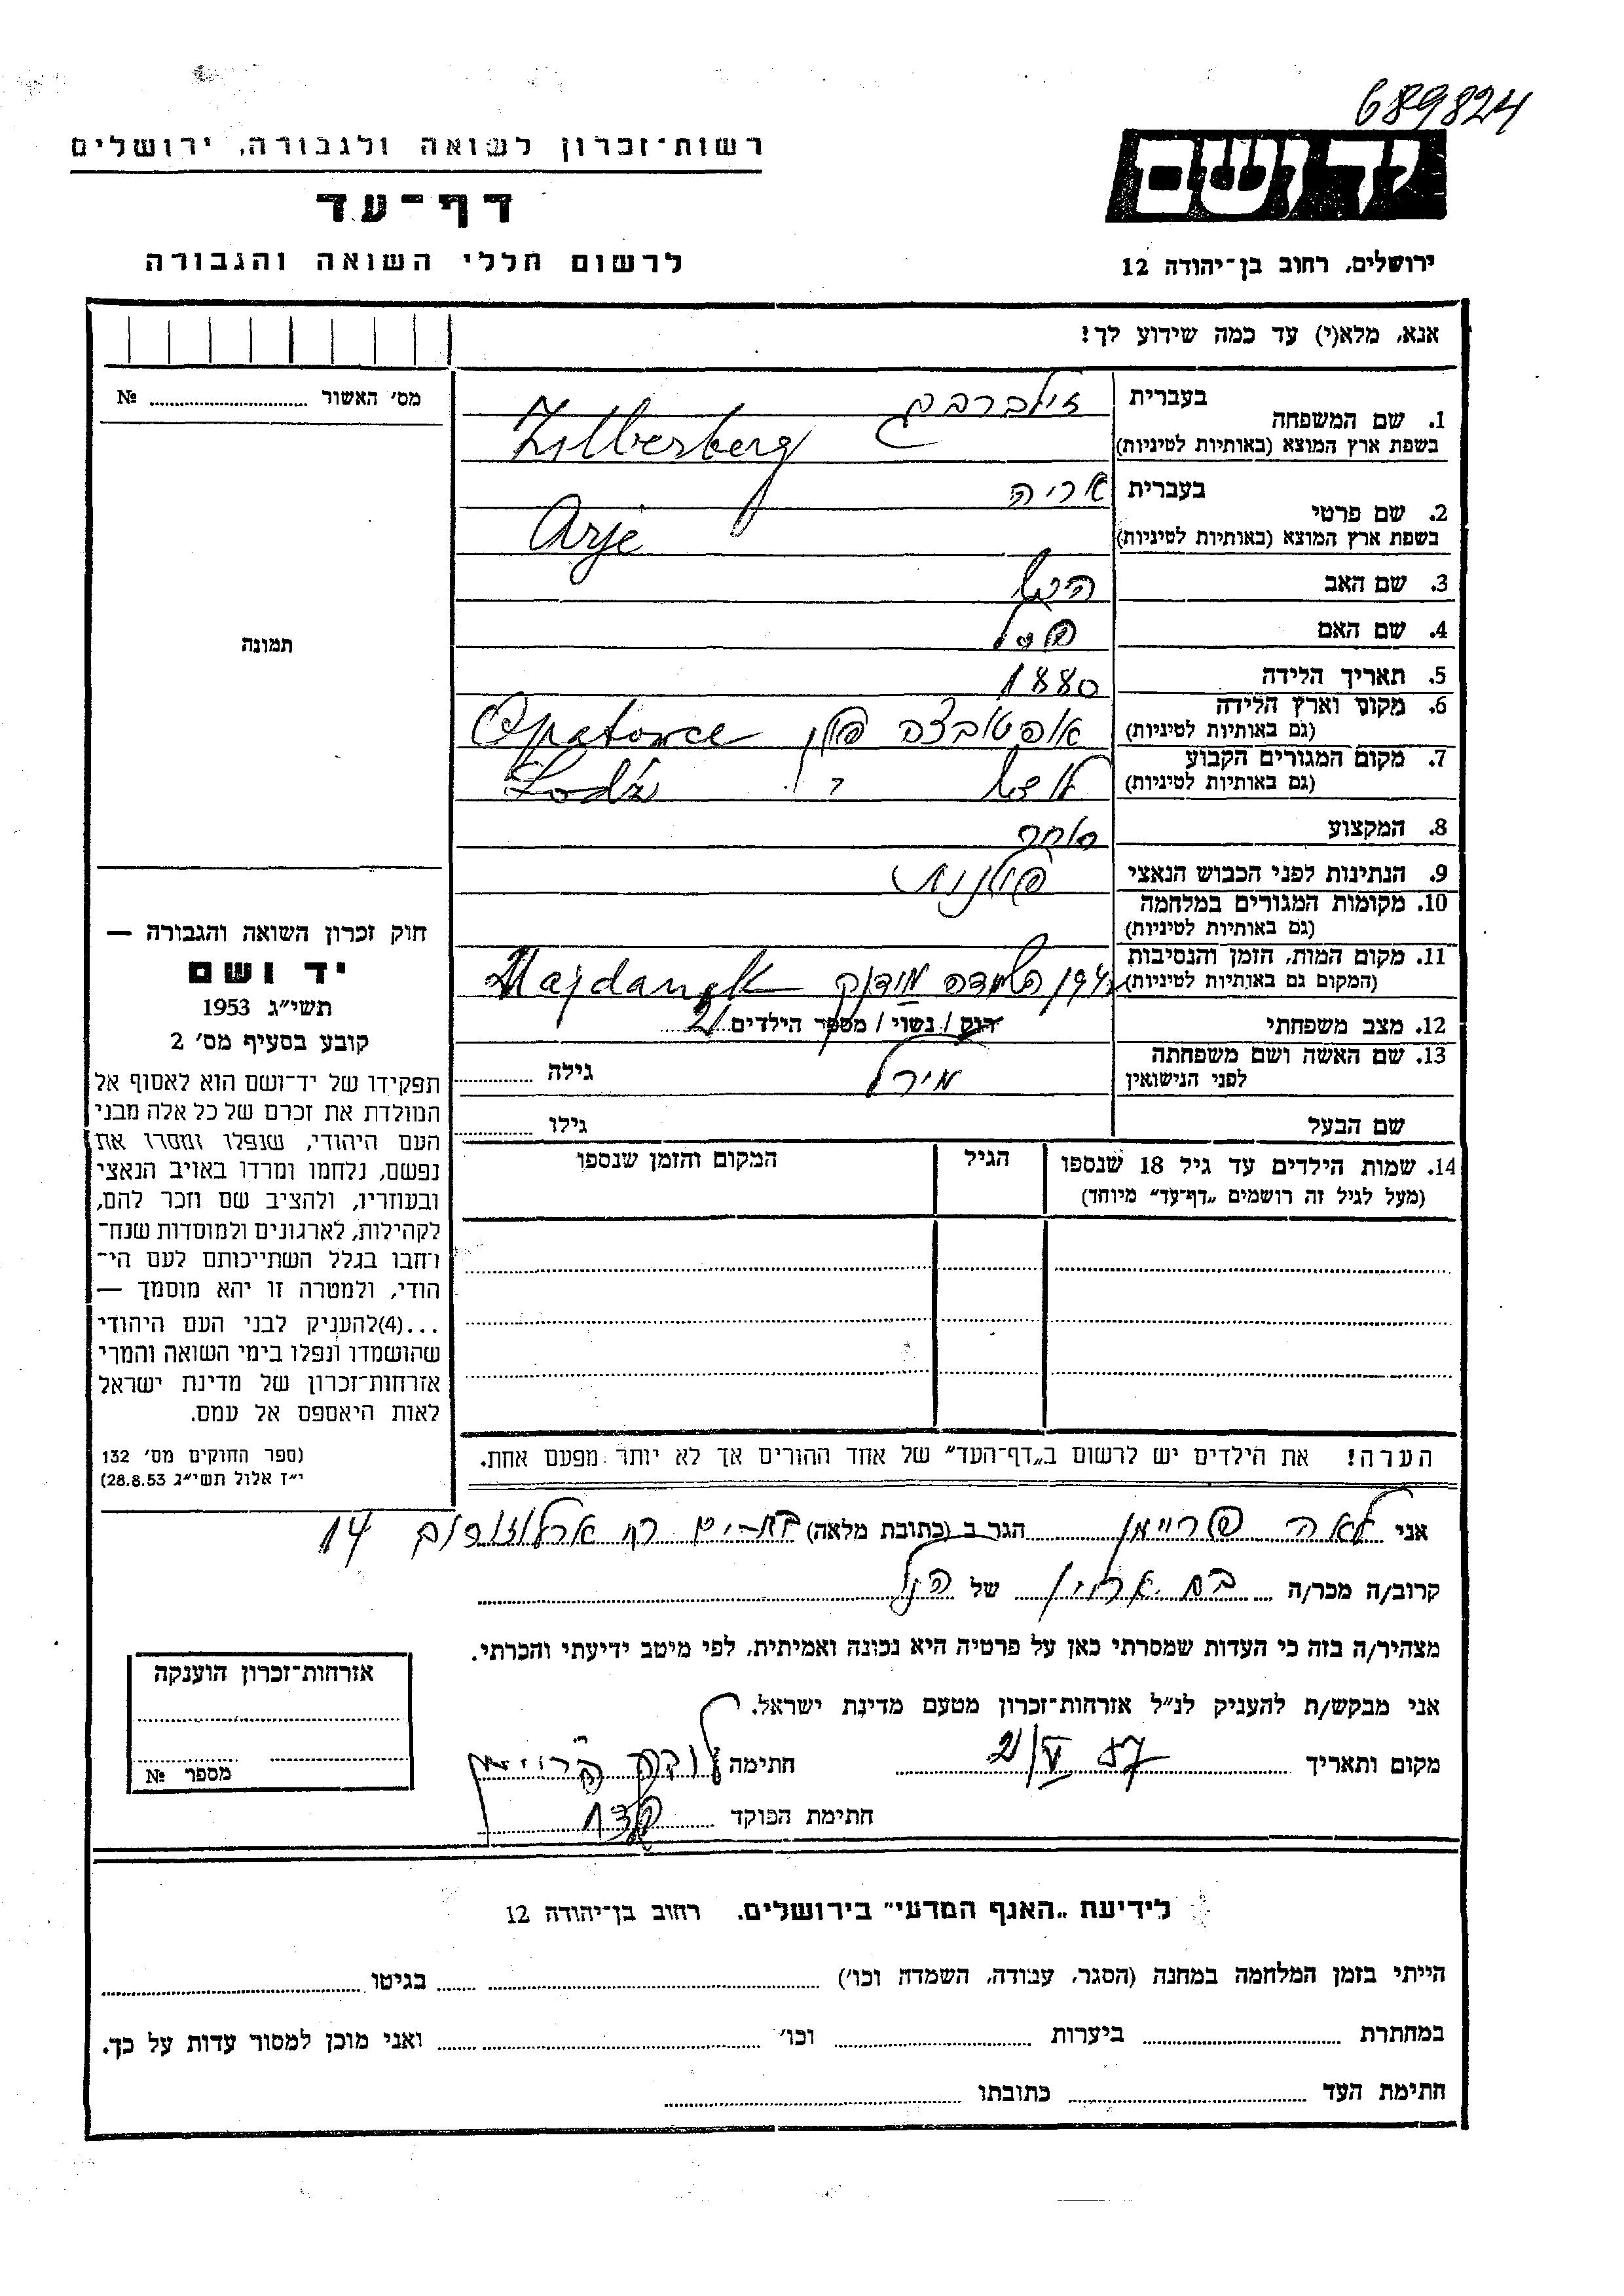 689824
יד ושם
ירושלים, רחוב בן־יהודה 12
רשות־זכרון לשואה ולגבורה, ירושלים
דף־עד
לרשום חללי השואה והגבורה
אנא, מלא(י) עד כמה שידוע לך!
מס׳ האשור № ....................
תמונה
בעברית זילברברג
1. שם המשפחה
בשפת ארץ המוצא (באותיות לטיניות) Zilberberg
בעברית אריה
2. שם פרטי
בשפת ארץ המוצא (באותיות לטיניות) Arje
3. שם האב
4. שם האם
5. תאריך הלידה 1880
6. מקום וארץ הלידה
(גם באותיות לטיניות) אפטובצה פולין Opatowce
7. מקום המגורים הקבוע
(גם באותיות לטיניות) לודז׳ Łodź
8. המקצוע סוחר
9. הנתינות לפני הכבוש הנאצי פולנית
10. מקומות המגורים במלחמה
(גם באותיות לטיניות)
11. מקום המות, הזמן והנסיבות
(המקום גם באותיות לטיניות) השמדה מידנק Majdanek
12. מצב משפחתי רוק / נשוי / מספר הילדים 2
13. שם האשה ושם משפחתה
לפני הנישואין מירל גילה
שם הבעל גילו
14. שמות הילדים עד גיל 18 שנספו הגיל המקום והזמן שנספו
(מעל לגיל זה רושמים „דף־עד״ מיוחד)
הערה! את הילדים יש לרשום ב„דף־העד״ של אחד ההורים אך לא יותר מפעם אחת.
חוק זכרון השואה והגבורה —
יד ושם
תשי״ג 1953
קובע בסעיף מס׳ 2
תפקידו של יד־ושם הוא לאסוף אל
המולדת את זכרם של כל אלה מבני
העם היהודי, שנפלו ומסרו את
נפשם, נלחמו ומרדו באויב הנאצי
ובעוזריו, ולהציב שם וזכר להם,
לקהילות, לארגונים ולמוסדות שנח־
רחבו בגלל השתייכותם לעם הי־
הודי, ולמטרה זו יהא מוסמך —
...(4)להעניק לבני העם היהודי
שהושמדו ונפלו בימי השואה והמרי
אזרחות־זכרון של מדינת ישראל
לאות היאספם אל עמם.
(ספר החוקים מס׳ 132
י״ז אלול תשי״ג 28.8.53)
אני לאה פריימן הגר ב (כתובת מלאה) בת־ים רח ארלוזורוב 14
קרוב/ה מכר/ה בת של הנ״ל
מצהיר/ה בזה כי העדות שמסרתי כאן על פרטיה היא נכונה ואמיתית, לפי מיטב ידיעתי והכרתי.
אני מבקש/ת להעניק לנ״ל אזרחות־זכרון מטעם מדינת ישראל.
מקום ותאריך 2/V 57 חתימה
חתימת הפוקד
אזרחות־זכרון הוענקה
מספר №
לידיעת „האגף המדעי״ בירושלים, רחוב בן־יהודה 12
הייתי בזמן המלחמה במחנה (הסגר, עבודה, השמדה וכו׳) בגיטו
במחתרת ביערות וכו׳ ואני מוכן למסור עדות על כך.
חתימת העד כתובתו